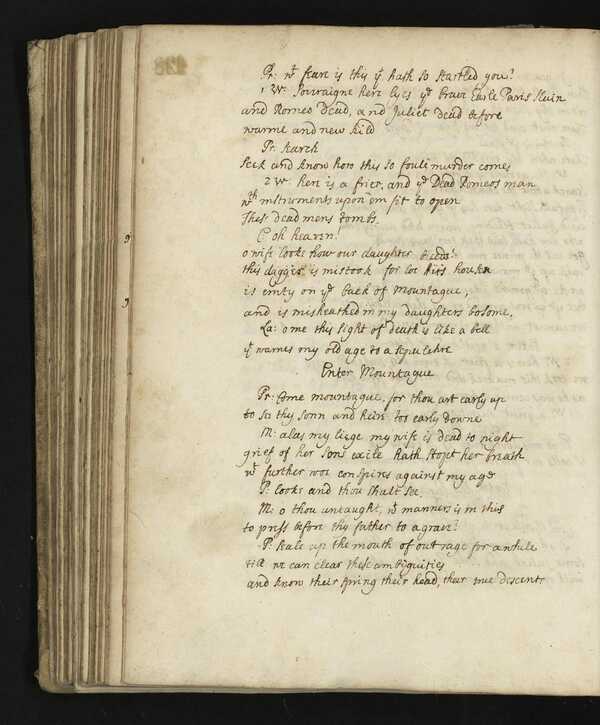 Pr: wt feare is this yt hath so startled you?
1 W: Soveraigne here lyes ye brave Earle Paris slain
and Romeo Dead, and Juliet Dead before
warme and new kild
Pr. search
seek and know how this so foule murder comes
2 W: here is a frier, and ye Dead Romeos man
wth instruments upon em fit to open
These dead mens tombs.
C oh heaven!
o wife looke how our daughter bleeds!
this dagger is mistook for loe his house
is emty on ye back of Mountague,
and is misheathed in my daughters bosome.
La: o me this sight of death is like a bell
yt warnes my old age to a sepulchre
Enter Mountague
Pr: Come mountague, for thou art early up
to see thy sonn and heir too early downe
M: alas my liege my wife is dead to night
grief of her sons exile hath stopt her breath
wt further woe conspires against my age
P: looke and thou shalt see.
M: o thou untaught, wt manners is in this
to press before thy father to a grave?
P. seale up the mouth of outrage for a while
till we can clear these ambiguities
and know their spring their head, their true descent